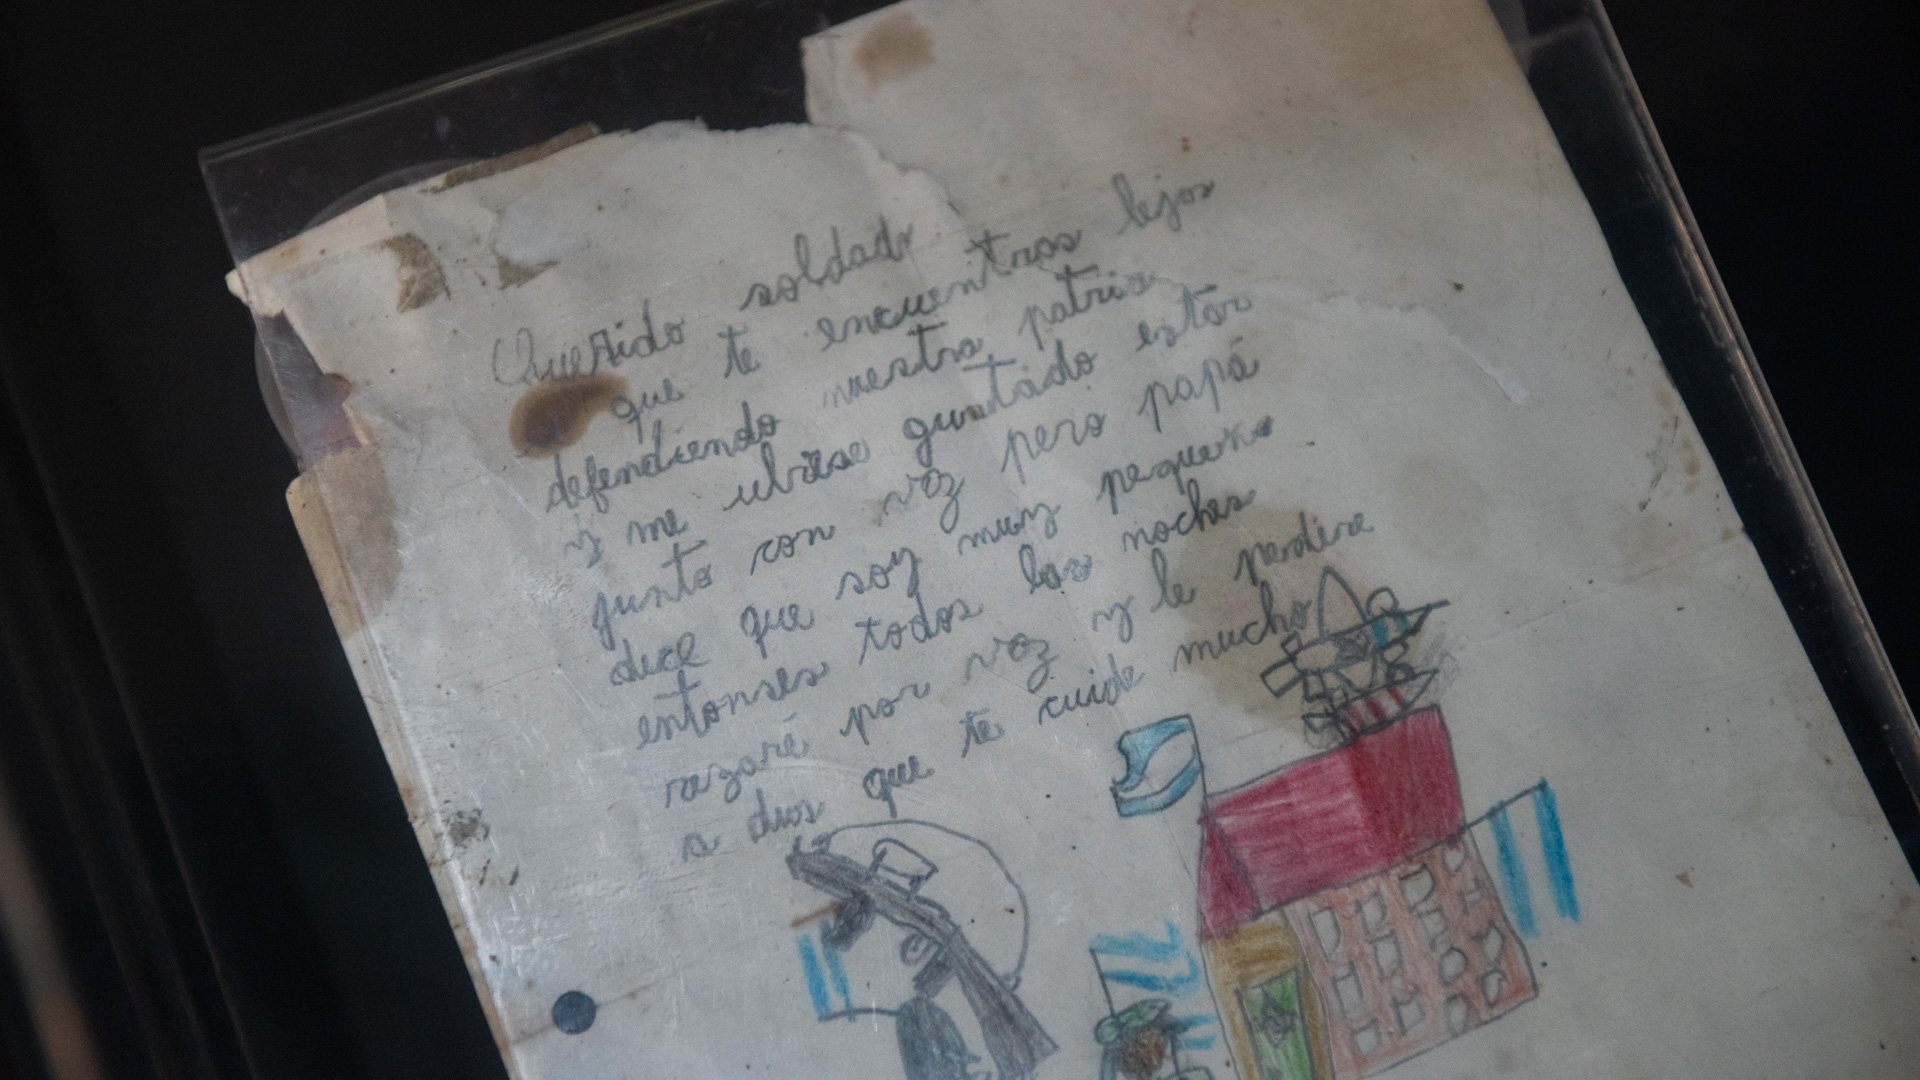 Querido soldado
que te encuentras lejos
defendiendo nuestra patria
y me ubiese gustado estar
junto con voz pero papá
dice que soy muy pequeño
entonses todos las noches
rezaré por voz y le pedire
a dios que te cuide mucho